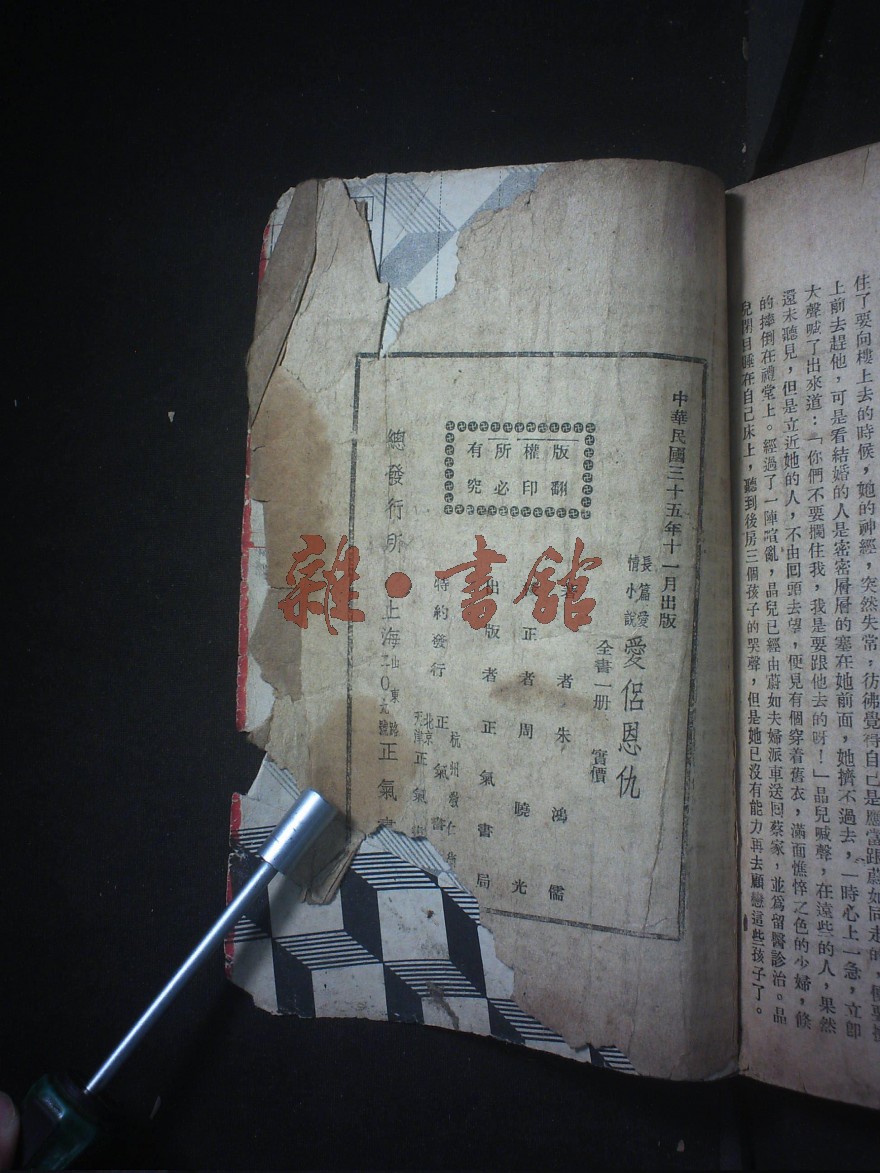 住了要向樓上去的時候，她的神經，突然失常，彷彿覺得自己是應當跟蔚如同走的，
上前去趕他，可是看結婚的人是密密層層的塞在她前面，她擠不過去，一時心上一急，立卽
大聲喊了出來道：「你們不要攔住我，我是要跟他去的呀！」品兒喊聲，在遠些的人，果然
還未聽見，但是立近她的人，不由囘頭去望，便見有個穿着舊衣，滿面憔悴之色的少婦，倏
的摔倒在禮堂上。經過了一陣喧亂，品兒已經由蔚如夫婦派車送囘蔡家，並爲留醫診治。品
兒閉目睡在自己床上，聽到後房三個孩子的哭聲，但是她已沒有能力再去顧戀這些孩子了。
中華民國三十五年十一月出版
長篇愛情小說
愛侶恩仇
全書一册 實價
者 朱鴻儒
正者 周曉光
出版者 正氣書局
特約發行
杭州
正氣書
北京
天津
正氣
總發行所 上海山東路二〇 正氣書
版權所有
翻印必究
雜·書舘